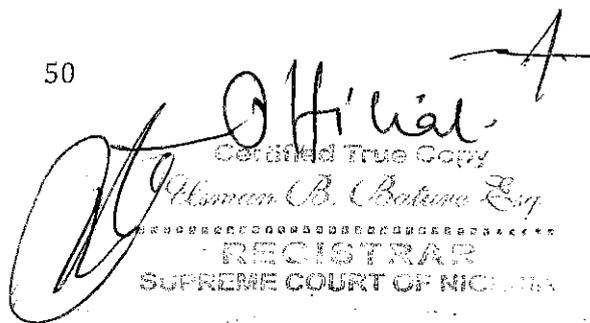 50
Official.
Certified True Copy
Usman B. Bature Esq
REGISTRAR
SUPREME COURT OF